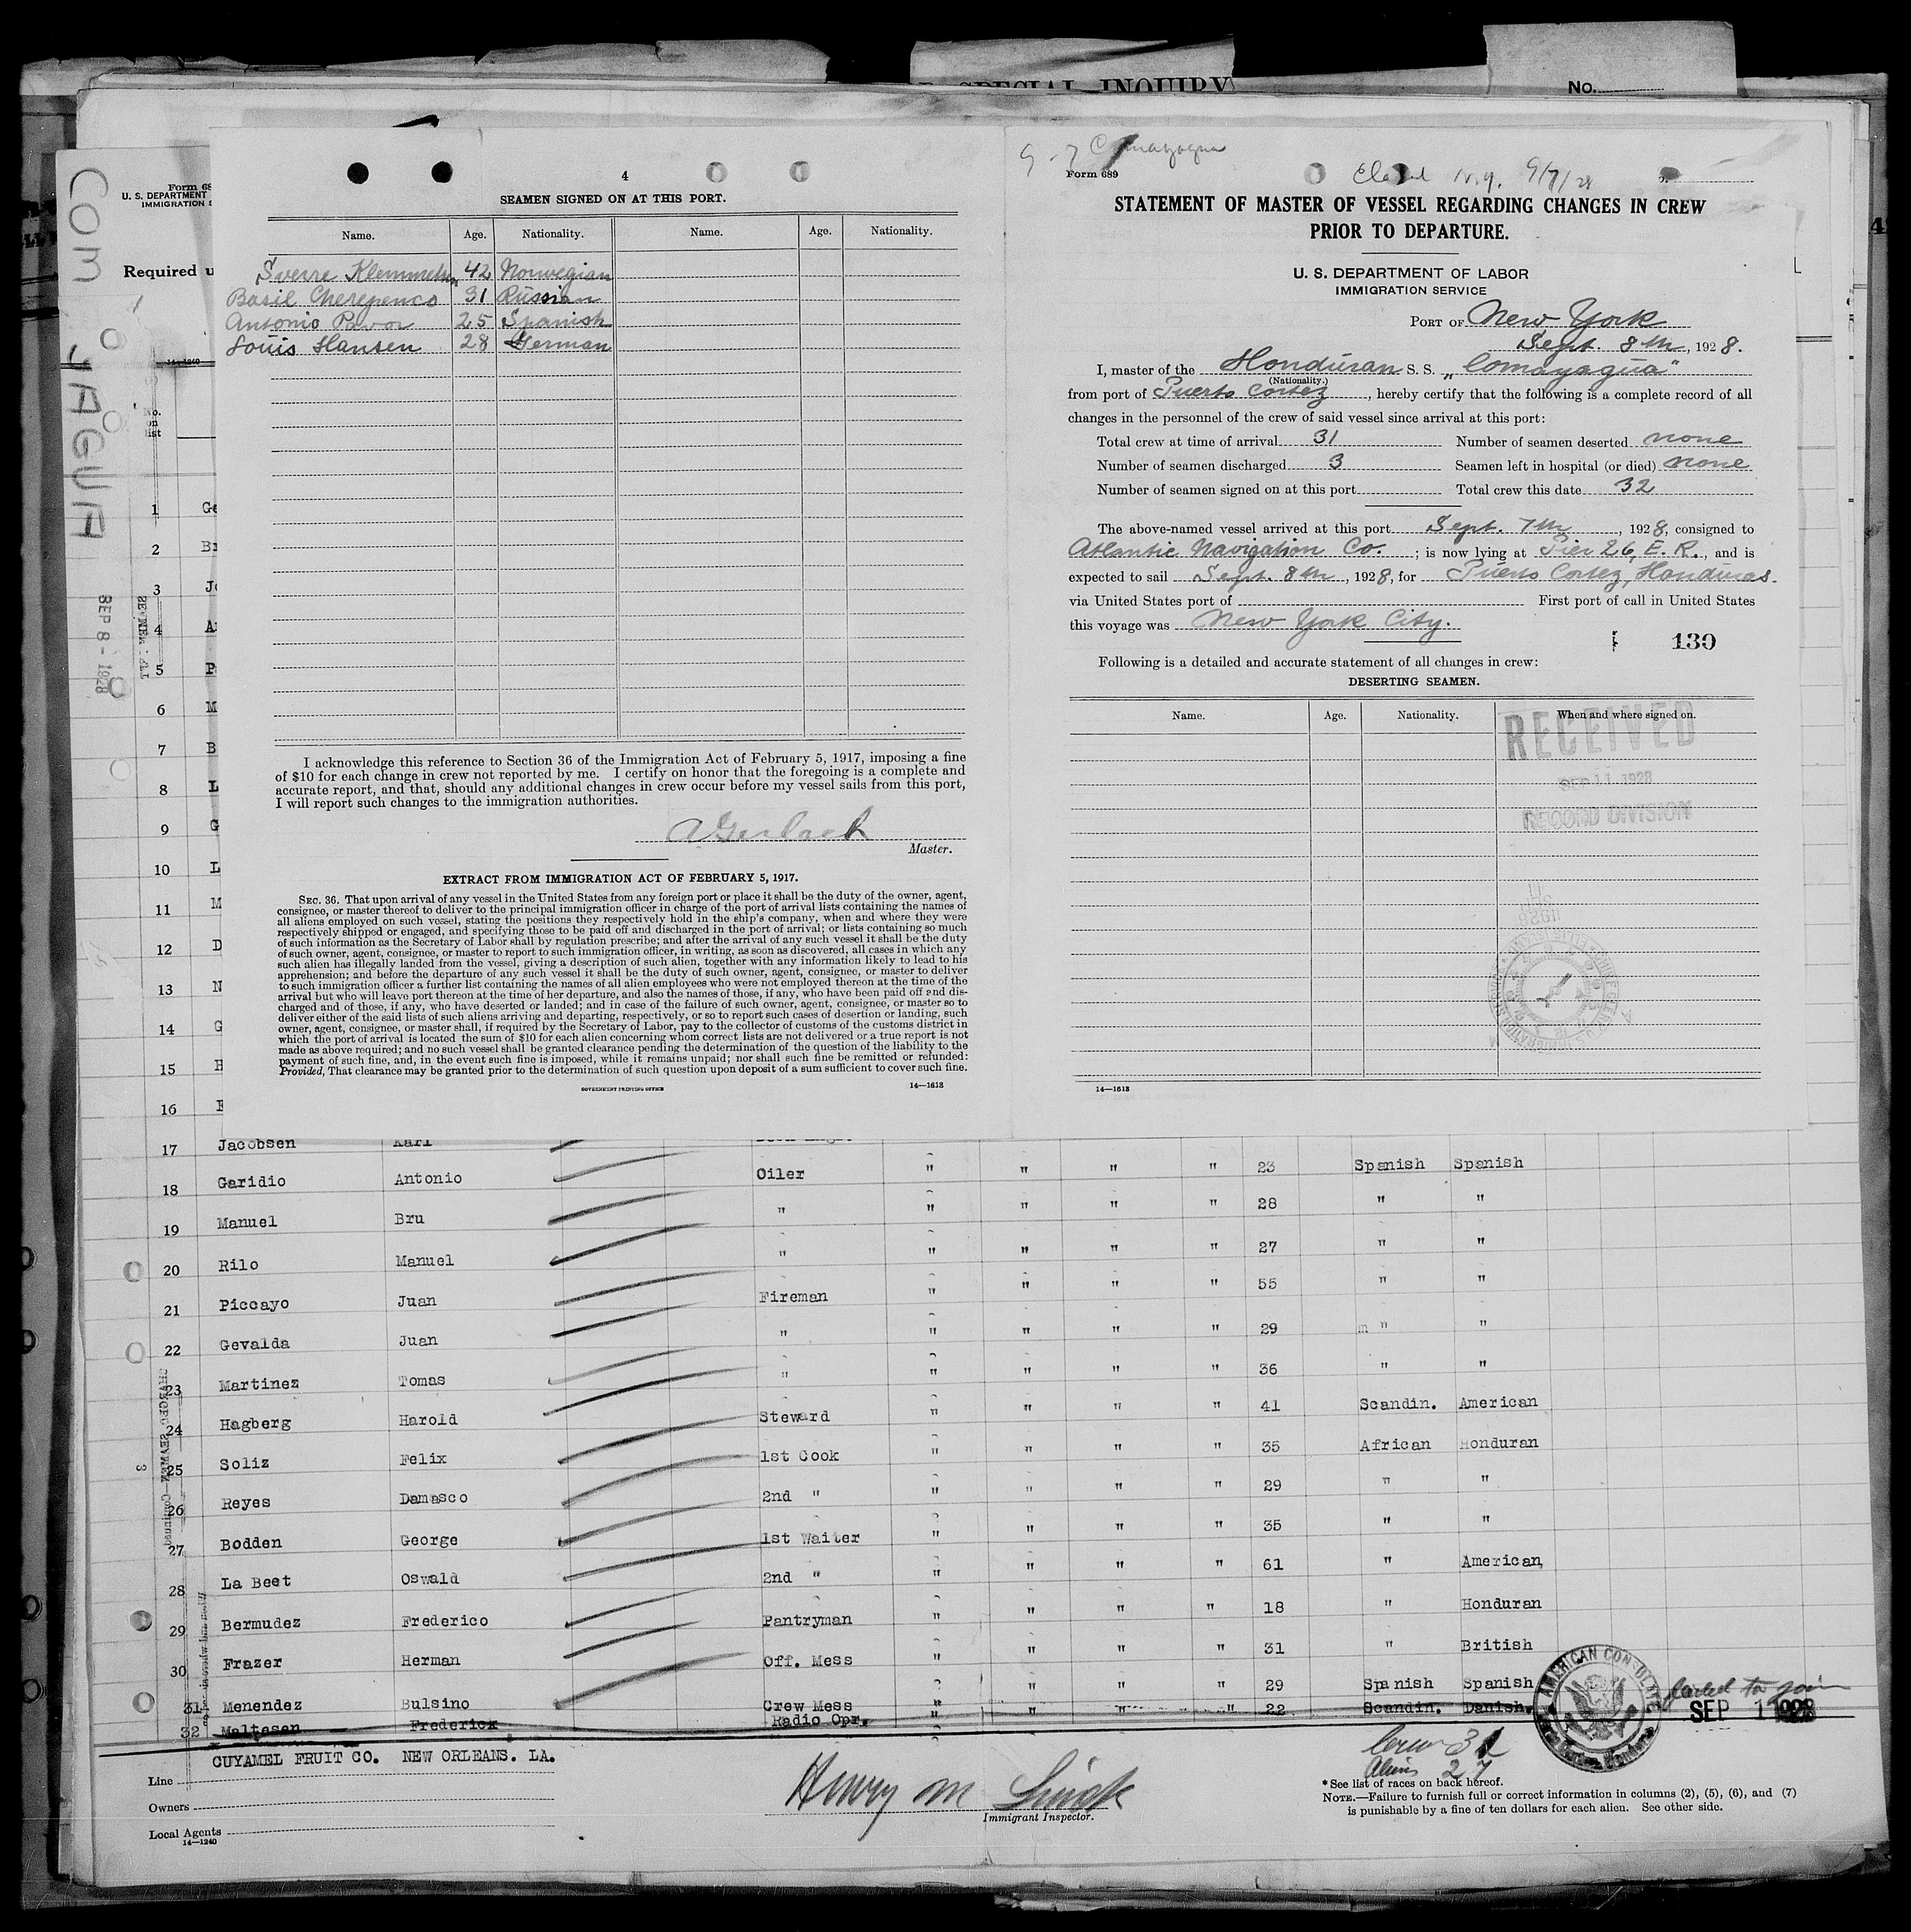 SPECIAL INQUIRY
No.
COMAYAGUA
Form 68
U. S. DEPARTMENT
IMMIGRATION S
Required u
14—1240
No.
on
list
SEP 8 - 1928
4
SEAMEN SIGNED ON AT THIS PORT.
Name. Age. Nationality. Name. Age. Nationality.
Sverre Klemmetsen 42 Norwegian
Basil Cherepenco 31 Russian
Antonio Pavor 25 Spanish
Louis Hansen 28 German
I acknowledge this reference to Section 36 of the Immigration Act of February 5, 1917, imposing a fine
of $10 for each change in crew not reported by me. I certify on honor that the foregoing is a complete and
accurate report, and that, should any additional changes in crew occur before my vessel sails from this port,
I will report such changes to the immigration authorities.
AGerlach
Master.
EXTRACT FROM IMMIGRATION ACT OF FEBRUARY 5, 1917.
SEC. 36. That upon arrival of any vessel in the United States from any foreign port or place it shall be the duty of the owner, agent,
consignee, or master thereof to deliver to the principal immigration officer in charge of the port of arrival lists containing the names of
all aliens employed on such vessel, stating the positions they respectively hold in the ship's company, when and where they were
respectively shipped or engaged, and specifying those to be paid off and discharged in the port of arrival; or lists containing so much
of such information as the Secretary of Labor shall by regulation prescribe; and after the arrival of any such vessel it shall be the duty
of such owner, agent, consignee, or master to report to such immigration officer, in writing, as soon as discovered, all cases in which any
such alien has illegally landed from the vessel, giving a description of such alien, together with any information likely to lead to his
apprehension; and before the departure of any such vessel it shall be the duty of such owner, agent, consignee, or master to deliver
to such immigration officer a further list containing the names of all alien employees who were not employed thereon at the time of the
arrival but who will leave port thereon at the time of her departure, and also the names of those, if any, who have been paid off and dis-
charged and of those, if any, who have deserted or landed; and in case of the failure of such owner, agent, consignee, or master so to
deliver either of the said lists of such aliens arriving and departing, respectively, or so to report such cases of desertion or landing, such
owner, agent, consignee, or master shall, if required by the Secretary of Labor, pay to the collector of customs of the customs district in
which the port of arrival is located the sum of $10 for each alien concerning whom correct lists are not delivered or a true report is not
made as above required; and no such vessel shall be granted clearance pending the determination of the question of the liability to the
payment of such fine, and, in the event such fine is imposed, while it remains unpaid; nor shall such fine be remitted or refunded:
Provided, That clearance may be granted prior to the determination of such question upon deposit of a sum sufficient to cover such fine.
GOVERNMENT PRINTING OFFICE 14—1613
9-7 Comayagua
Form 689
N.Y. 9/7/28
STATEMENT OF MASTER OF VESSEL REGARDING CHANGES IN CREW
PRIOR TO DEPARTURE.
U. S. DEPARTMENT OF LABOR
IMMIGRATION SERVICE
PORT OF New York
Sept. 8th, 1928.
I, master of the Honduran S. S. „Comayagua"
(Nationality.)
from port of Puerto Cortez, hereby certify that the following is a complete record of all
changes in the personnel of the crew of said vessel since arrival at this port:
Total crew at time of arrival 31 Number of seamen deserted none
Number of seamen discharged 3 Seamen left in hospital (or died) none
Number of seamen signed on at this port Total crew this date 32
The above-named vessel arrived at this port Sept. 7th, 1928, consigned to
Atlantic Navigation Co.; is now lying at Pier 26, E. R., and is
expected to sail Sept. 8th, 1928, for Puerto Cortez, Honduras.
via United States port of First port of call in United States
this voyage was New York City.
130
Following is a detailed and accurate statement of all changes in crew:
DESERTING SEAMEN.
Name. Age. Nationality. When and where signed on.
RECEIVED
SEP 11 1928
RECORD DIVISION
14—1613
1 Ge
2 Br
3 Jo
4 A
5 P
6 M
7 B
8 L
9 G
10 L
11 M
12 D
13 N
14 G
15 H
16 E
17 Jacobsen Karl
18 Garidio Antonio Oiler " " " " 23 Spanish Spanish
19 Manuel Bru " " " " " 28 " "
20 Rilo Manuel " " " " " 27 " "
21 Piccayo Juan Fireman " " " " 55 " "
22 Gevalda Juan " " " " " 29 m " "
23 Martinez Tomas " " " " " 36 " "
24 Hagberg Harold Steward " " " " 41 Scandin. American
25 Soliz Felix 1st Cook " " " " 35 African Honduran
26 Reyes Damasco 2nd " " " " " 29 " "
27 Bodden George 1st Waiter " " " " 35 " "
28 La Beet Oswald 2nd " " " " " 61 " American
29 Bermudez Frederico Pantryman " " " " 18 " Honduran
30 Frazer Herman Off. Mess " " " " 31 " British
31 Menendez Bulsino Crew Mess " " " 29 Spanish Spanish
32 Maltesen Frederick Radio Opr. " " " " 22 Scandin. Danish.
failed to join
SEP 1 1928
AMERICAN CONSULATE
Crew 31
Aliens 27
CUYAMEL FRUIT CO. NEW ORLEANS. LA.
Line
Owners
Local Agents
14—1240
Henry M
Immigrant Inspector.
* See list of races on back hereof.
NOTE.—Failure to furnish full or correct information in columns (2), (5), (6), and (7)
is punishable by a fine of ten dollars for each alien. See other side.